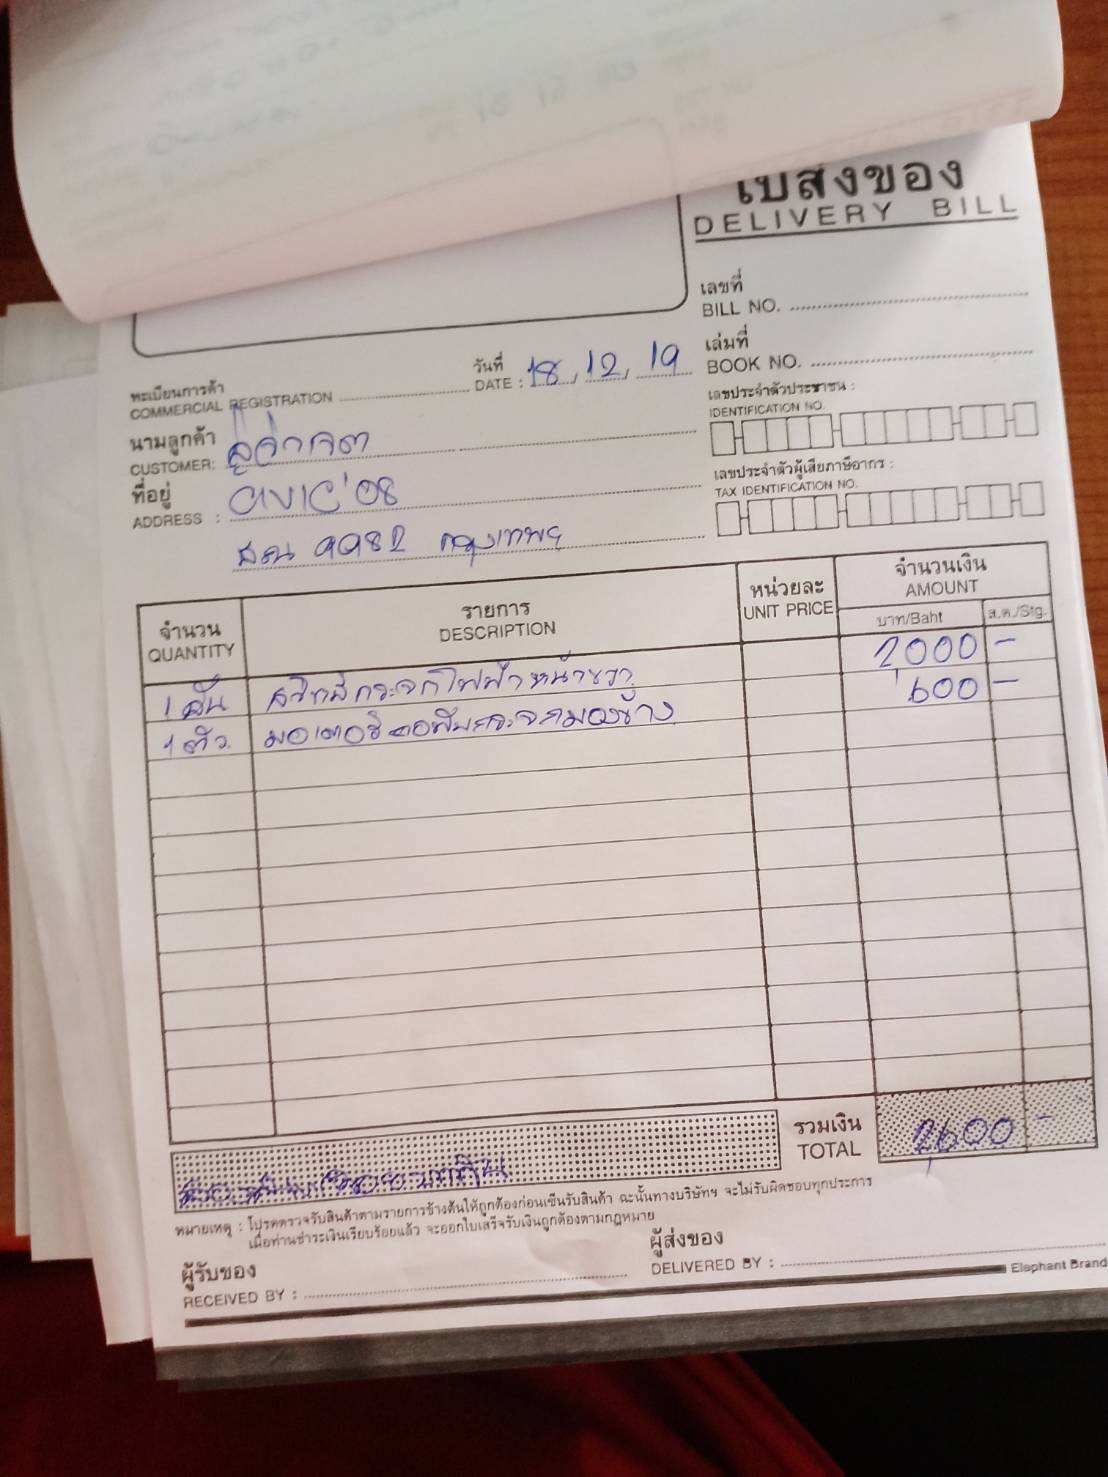 ใบส่งของ
DELIVERY BILL
เลขที่
BILL NO.
วันที่
DATE : 18, 12, 19
เล่มที่
BOOK NO.
ทะเบียนการค้า
COMMERCIAL REGISTRATION
เลขประจำตัวประชาชน :
IDENTIFICATION NO.
นามลูกค้า
CUSTOMER:
เลขประจำตัวผู้เสียภาษีอากร :
TAX IDENTIFICATION NO.
ที่อยู่ CIVIC'08
ADDRESS :
9982 กรุงเทพฯ
จำนวน รายการ หน่วยละ จำนวนเงิน
QUANTITY DESCRIPTION UNIT PRICE AMOUNT
บาท/Baht ส.ต./Stg.
1 อัน สวิทช์กระจกไฟฟ้าหน้าขวา 2,000 -
1 ตัว มอเตอร์ กระจกมองข้าง 600 -
รวมเงิน
TOTAL 2,600 -
หมายเหตุ : โปรดตรวจรับสินค้าตามรายการข้างต้นให้ถูกต้องก่อนเซ็นรับสินค้า ฉะนั้นทางบริษัทฯ จะไม่รับผิดชอบทุกประการ
เมื่อท่านชำระเงินเรียบร้อยแล้ว จะออกใบเสร็จรับเงินถูกต้องตามกฎหมาย
ผู้รับของ
RECEIVED BY :
ผู้ส่งของ
DELIVERED BY :
Elephant Brand